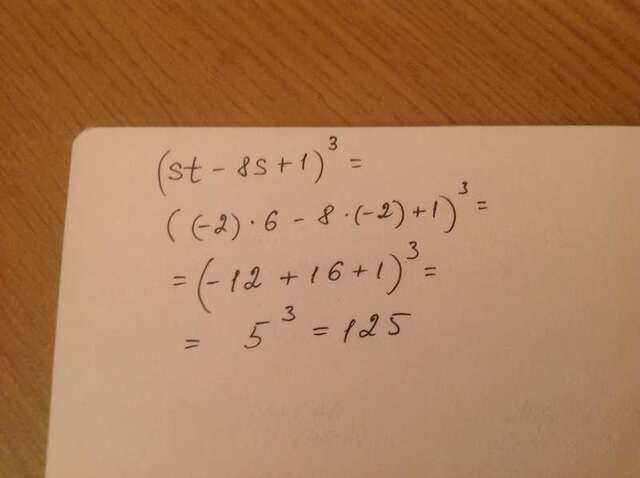 (st - 8s + 1)³ =
((-2) · 6 - 8 · (-2) + 1)³ =
= (-12 + 16 + 1)³ =
= 5³ = 125